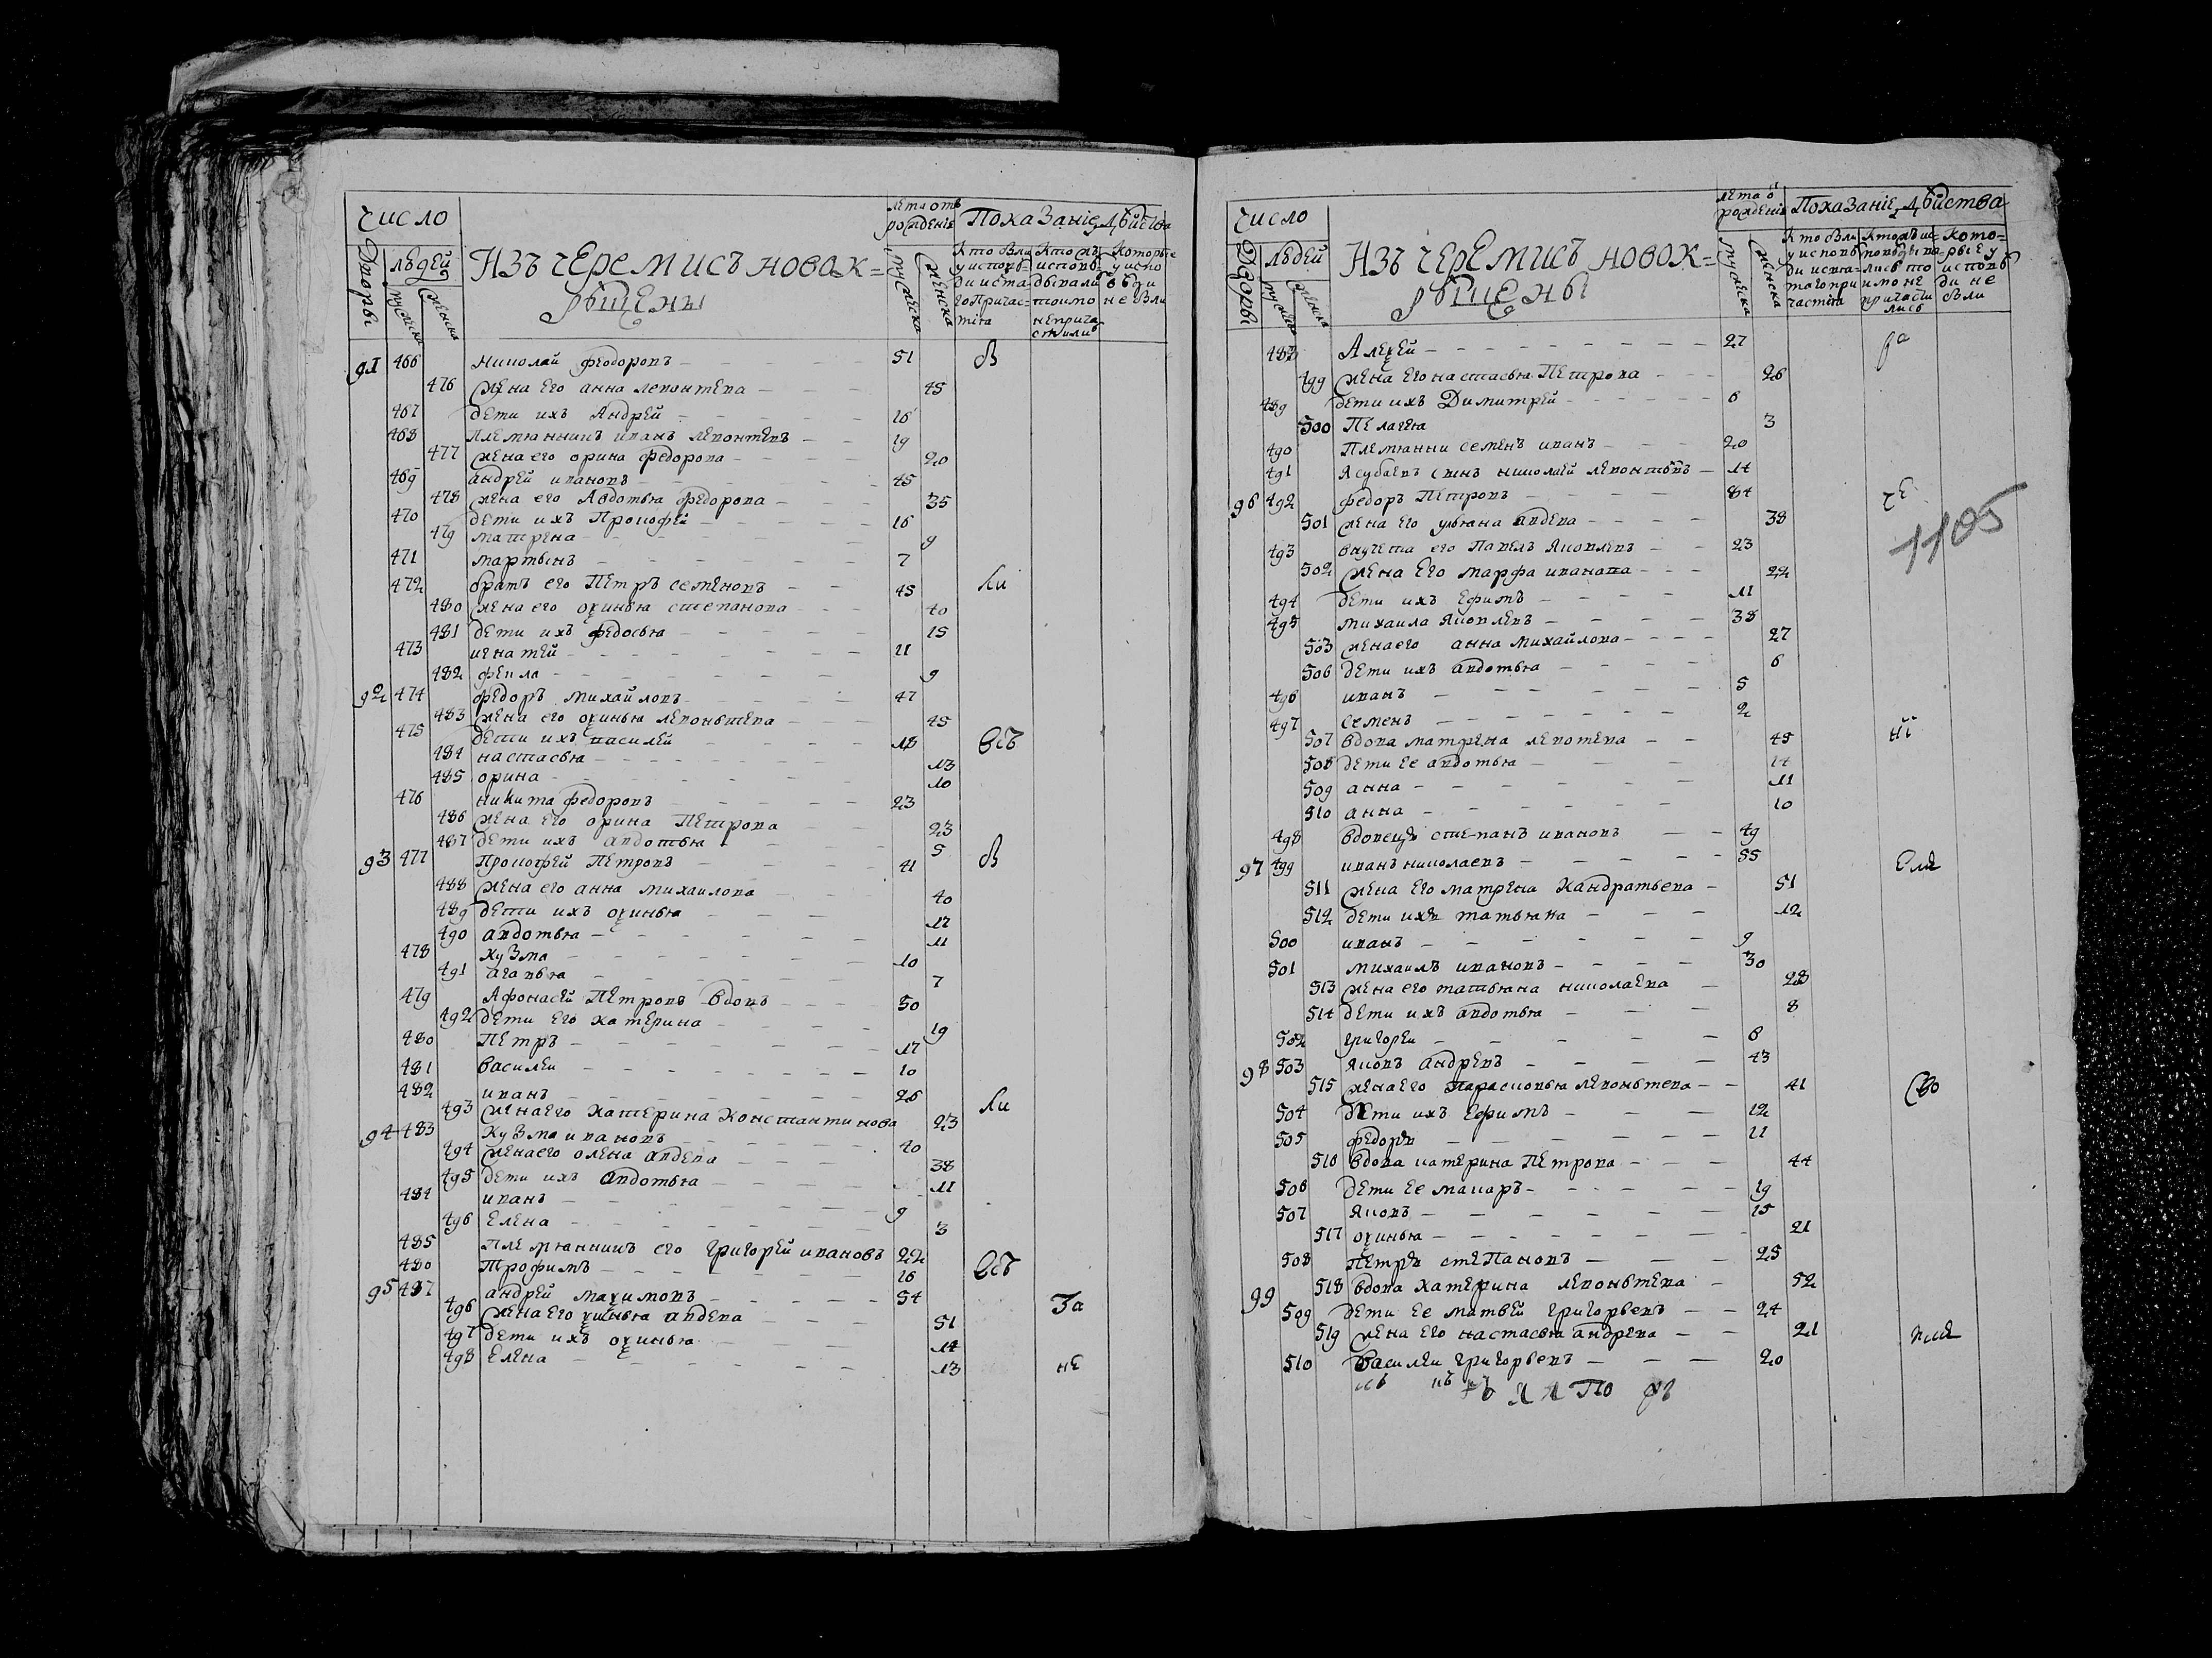 число
Изъ черемисъ новок=
рѣщены
лета отъ
рождениѧ
Показаніе дѣйства
Дворы
людей
мужеска
женска
мужеска
женска
Кто были
у исповѣ-
ди и ста-
го Причас-
тиѧ
Кто
исповѣ-
дывали
токмо
неприча
стились
Которые
у испо
вѣди
не были
91 466 николай феодоровъ 51 б
476 жена Его анна леонтева 45
467 дети ихъ Андрей 16
468 племянникъ иванъ леонтевъ 19
477 жена его орина Федорова 20
469 андрей ивановъ 45
478 жена его Авдотья федорова 35
470 дети ихъ Прокофей 16
479 матрена 9
471 мартынъ 7
472 братъ его Петръ семеновъ 45 ли
480 жена его оѯинья степанова 40
481 дети ихъ федосья 15
473 игнатей 11
482 фекла 9
92 474 федоръ михайловъ 47
483 жена его оѯинья леоньтева 45
475 дети ихъ василей 18 всѣ
484 настасья 13
485 орина 10
476 никита федоровъ 23
486 жена его орина Петрова 23
487 дети ихъ авдотья 5
93 477 Прокофей Петровъ 41 б
488 жена его анна михаилова 40
489 дети ихъ оѯинья 17
490 авдотья 11
478 кузма 10
491 агапья 7
479 Афонасей Петровъ вдовъ 50
492 дети Его катерина 19
480 Петръ 17
481 василей 10
482 иванъ 26
493 жена Его катерина константинова 23 ли
94 483 кузма ивановъ 40
494 жена его олена авдева 38
495 дети ихъ авдотья 11
484 иванъ 9
496 Елена 3
485 племянникъ его григорей ивановъ 22
480 трофимъ 16 всѣ
95 487 андрей маѯимовъ 54 За
496 жена Его ѯинья авдева 51
497 дети ихъ оѯинья 14
498 Елена 13 не
число
Изъ черемисъ новок=
рѣщены
лета ѿ
рождениѧ
Показаніе дѣйства
Дворы
людей
мужеска
женска
мужеска
женска
Кто были
у исповѣ
ди и свѧ-
таго при
частиѧ
Кто
исповѣдыва-
лись то
кмо не
причасти
лись
Кото=
рые у
исповѣ
ди не
были
488 Алеѯей 27 ра
499 жена Его настасья Петрова 26
489 дети ихъ Димитрей 6
500 Пелагея 3
490 Племянни семенъ иванъ 20
491 Ясубаевъ сынъ николаей леонтьевъ 14
96 492 федоръ Петровъ 84 че
501 жена Его ульяна авдева 38
1105
493 внучета его Павелъ Яковлевъ 23
502 жена Его марфа иванова 22
494 дети ихъ Ефимъ 11
495 михаила Яковлевъ 38
503 жена его анна михайлова 27
506 дети ихъ авдотья 6
496 иванъ 5
497 семенъ 2
507 вдова матрена леонтева 45 нї
508 дети Ее авдотья 14
509 анна 11
510 анна 10
498 вдовецъ степанъ ивановъ 49
97 499 иванъ николаевъ 55
511 жена Его матрена кандратьева 51
512 дети ихъ татьяна 12
500 иванъ 9
501 михаилъ ивановъ 30
513 жена его татьяна николаева 28
514 дети ихъ авдотья 8
502 григореи 6
98 503 Яковъ андревъ 43
515 жена Его парасковья леоньтева 41 сво
504 дети ихъ Ефимъ 12
505 федоръ 11
510 вдова катерина Петрова 44
506 дети Ее макаръ 19
507 Яковъ 15
517 оѯинья 21
508 петръ степановъ 25
99 518 вдова катерина леоньтева 52
509 дети Ее матвей григорьевъ 24
519 жена Его настасья андрева 21
510 Василеи григорьевъ 20